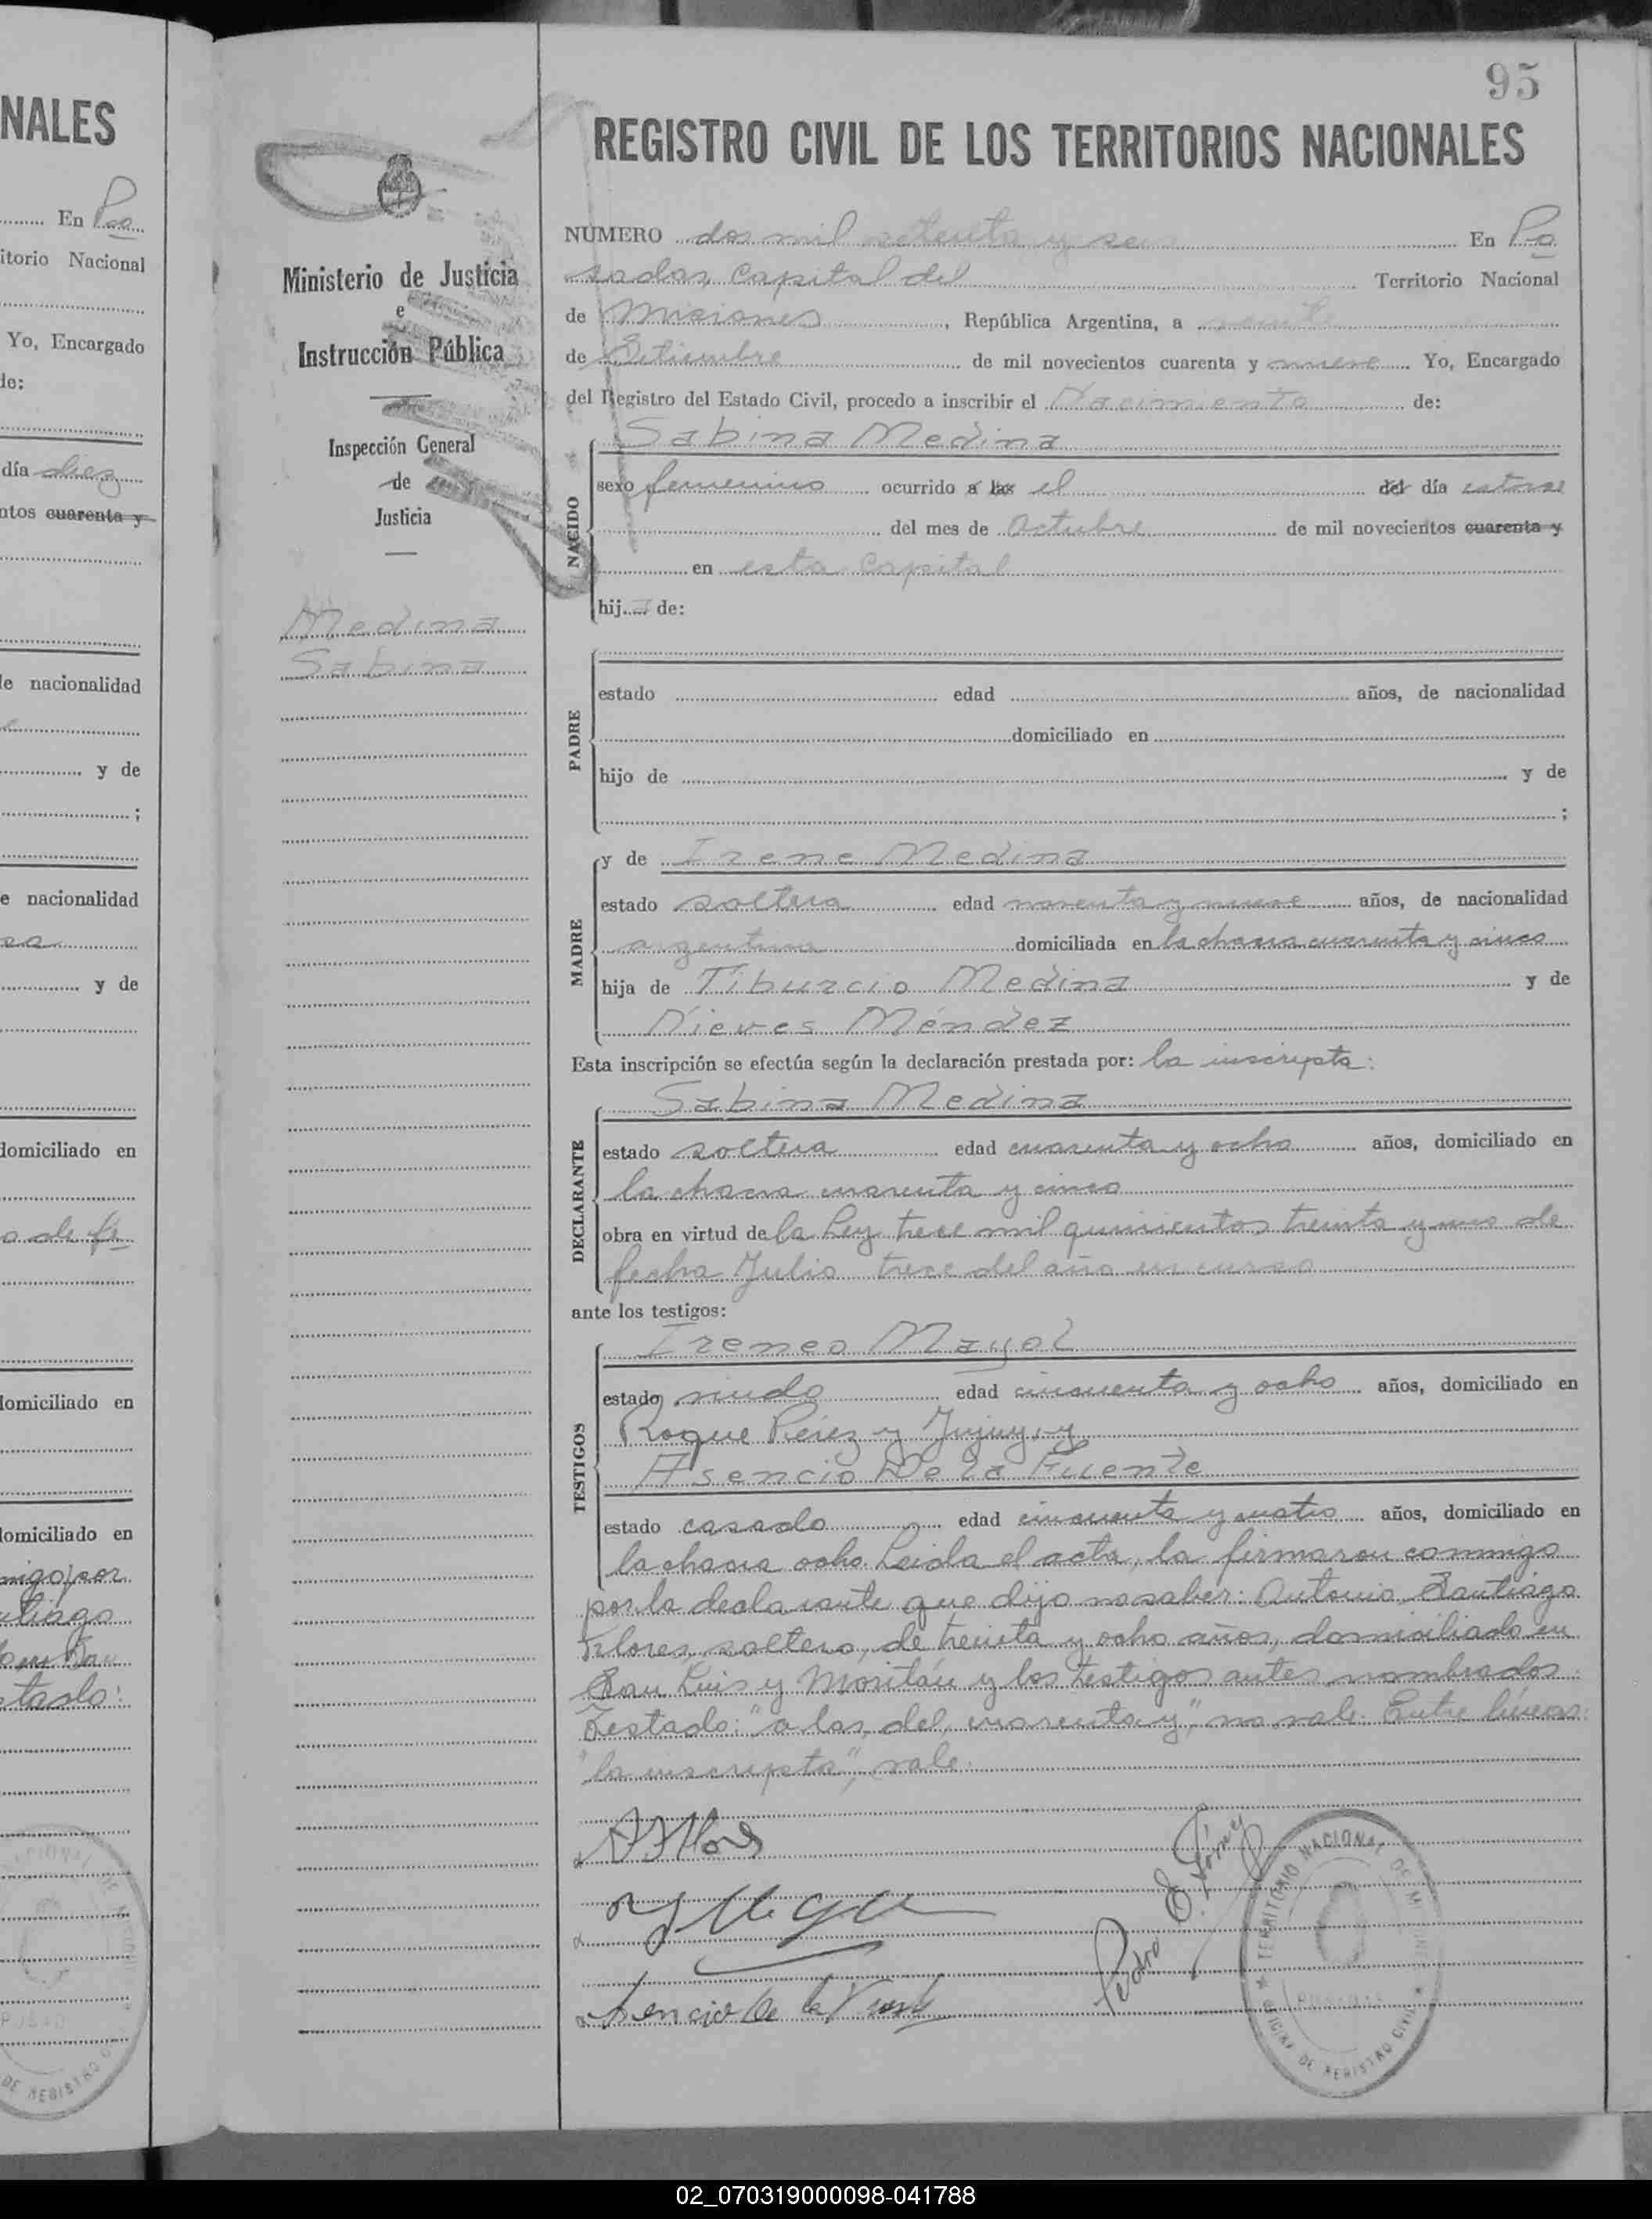 NALES
En Po
itorio Nacional
Yo, Encargado
de:
día diez
ntos cuarenta y
de nacionalidad
y de
;
e nacionalidad
y de
domiciliado en
domiciliado en
domiciliado en
migo, por
ntiago
tado:
95
REGISTRO CIVIL DE LOS TERRITORIOS NACIONALES
Ministerio de Justicia
e
Instrucción Pública
Inspección General
de
Justicia
Medina
Sabina
NÚMERO dos mil setenta y seis En Po
sadas, capital del Territorio Nacional
de Misiones, República Argentina, a veinte
de Setiembre de mil novecientos cuarenta y nueve Yo, Encargado
del Registro del Estado Civil, procedo a inscribir el Nacimiento de:
NACIDO
Sabina Medina
sexo femenino ocurrido a las el del día catorce
del mes de Octubre de mil novecientos cuarenta y
en esta Capital
hija de:
PADRE
estado edad años, de nacionalidad
domiciliado en
hijo de y de
;
MADRE
y de Irene Medina
estado soltera edad noventa y nueve años, de nacionalidad
argentina domiciliada en la chacra cuarenta y cinco
hija de Tiburcio Medina y de
Nieves Méndez
Esta inscripción se efectúa según la declaración prestada por: la inscripta:
DECLARANTE
Sabina Medina
estado soltera edad cuarenta y ocho años, domiciliado en
la chacra cuarenta y cinco
obra en virtud de la Ley trece mil quinientos treinta y uno de
fecha Julio trece del año en curso
ante los testigos:
TESTIGOS
Ireneo Mayol
estado viudo edad cincuenta y ocho años, domiciliado en
Roque Pérez y Jujuy, y
Asencio De la Fuente
estado casado edad cincuenta y cuatro años, domiciliado en
la chacra ocho. Leida el acta, la firmaron conmigo
por la declarante que dijo no saber: Antonio Santiago
Flores, soltero, de treinta y ocho años, domiciliado en
San Luis y Moritán y los testigos antes nombrados.
Testado: "a las, del, cuarenta y", no vale. Entre líneas:
"la inscripta", vale.
Asencio De la Fuente
Pedro E.
TERRITORIO NACIONAL DE MISIONES
POSADAS
OFICINA DE REGISTRO CIVIL
02_070319000098-041788